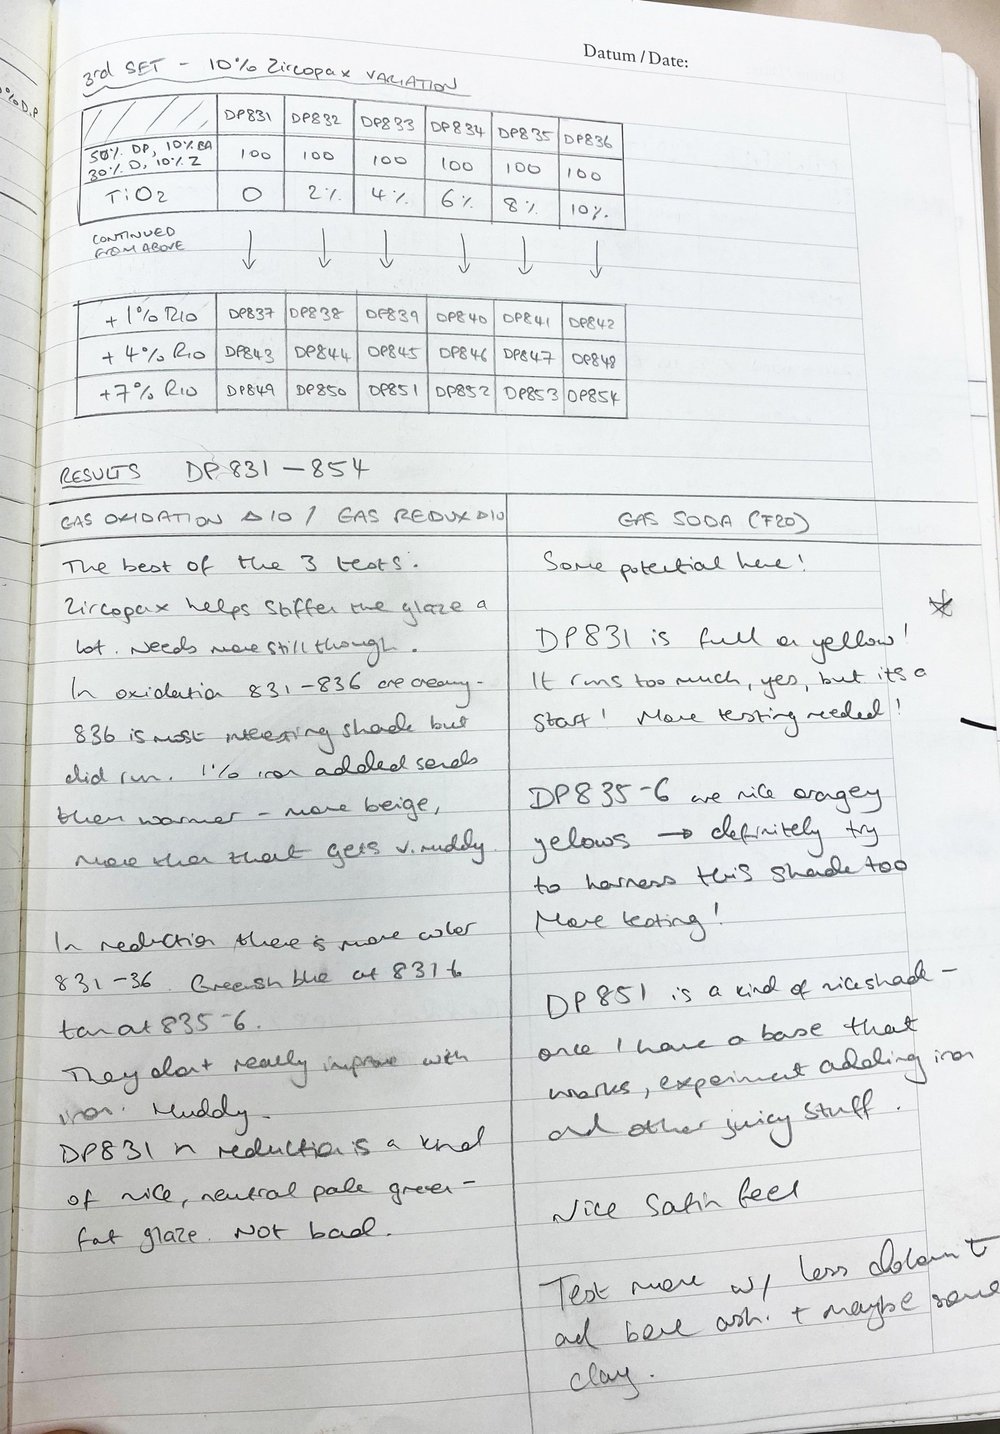 Datum / Date:
% D.P
3rd SET - 10% Zircopax VARIATION
DP831 DP832 DP833 DP834 DP835 DP836
50% DP, 10% BA
30% D, 10% Z 100 100 100 100 100 100
TiO2 0 2% 4% 6% 8% 10%
CONTINUED
FROM ABOVE
+ 1% RIO DP837 DP838 DP839 DP840 DP841 DP842
+ 4% RIO DP843 DP844 DP845 DP846 DP847 DP848
+7% RIO DP849 DP850 DP851 DP852 DP853 DP854
RESULTS DP831-854
GAS OXIDATION Δ10 / GAS REDUX Δ10
The best of the 3 tests.
Zircopax helps stiffer the glaze a
lot. Needs more still though.
In oxidation 831-836 are creamy-
836 is most interesting shade but
did run. 1% iron added sends
them warmer - more beige,
more than that gets v. muddy
In reduction there is more color
831-36. Greenish blue at 831 to
tan at 835-6.
They don't really improve with
iron. Muddy.
DP831 in reduction is a kind
of nice, neutral pale green-
fat glaze. Not bad.
GAS SODA (F20)
Some potential here!
DP831 is full on yellow!
It runs too much, yes, but its a
start! More testing needed!
DP835-6 are nice orangey
yellows → definitely try
to harness this shade too
More testing!
DP851 is a kind of nice shade -
once I have a base that
works, experiment adding iron
and other juicy stuff.
Nice satin feel
Test more w/ less dolomite
and bone ash. + maybe some
clay.